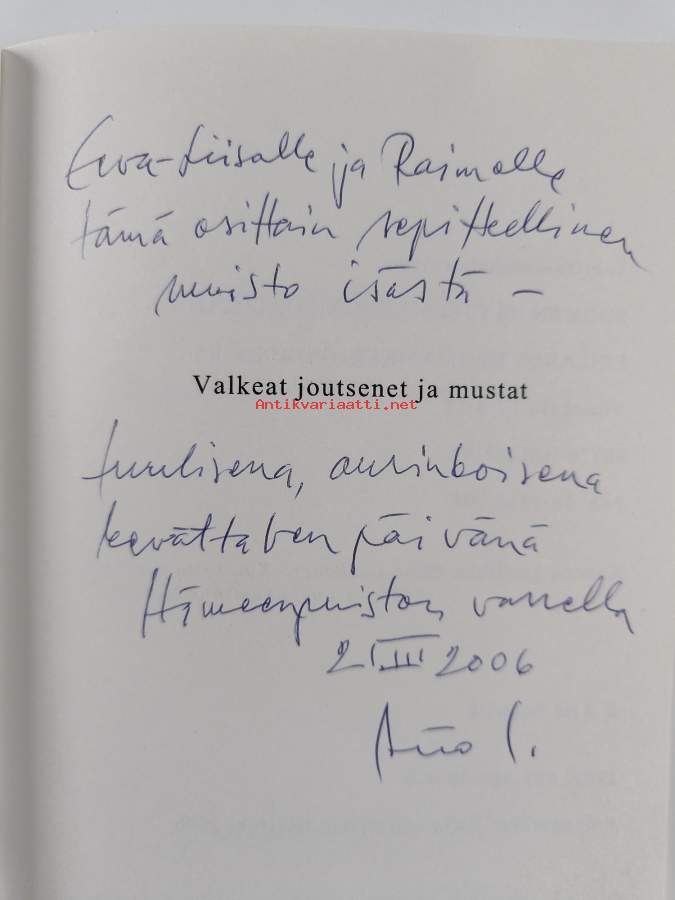 Eeva-Liisalle ja Raimolle
tämä osittain sepitteellinen
muisto isästä –
Valkeat joutsenet ja mustat
Antikvariaatti.net
tuulisena, aurinkoisena
kevättalven päivänä
Hämeenpuiston varrella
21.III 2006